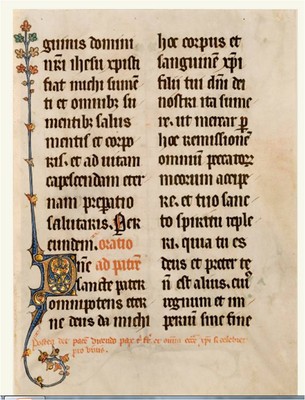 guinis domini
nr̄i ihesu xpisti
fiat michi sumē
ti et omnibꝫ su
mentibꝫ salus
mentis et corpo
ris. et ad uitam
capescendam eter
nam prepatio
salutaris. Per
eundem. oratio
Dn̄e ad patrem
sancte pater
omnipotens eter
ne deus da michi
hoc corpus et
sanguinē xpi
filii tui dn̄i dei
nostri ita sume
re. ut merear ꝑ
hoc remissionē
omniū peccator
meorum accipe
re. et tuo sanc
to spiritu reple
ri. quia tu es
deus et preter te
n̄ est alius. cuiꝰ
regnum et im
perium sine fine